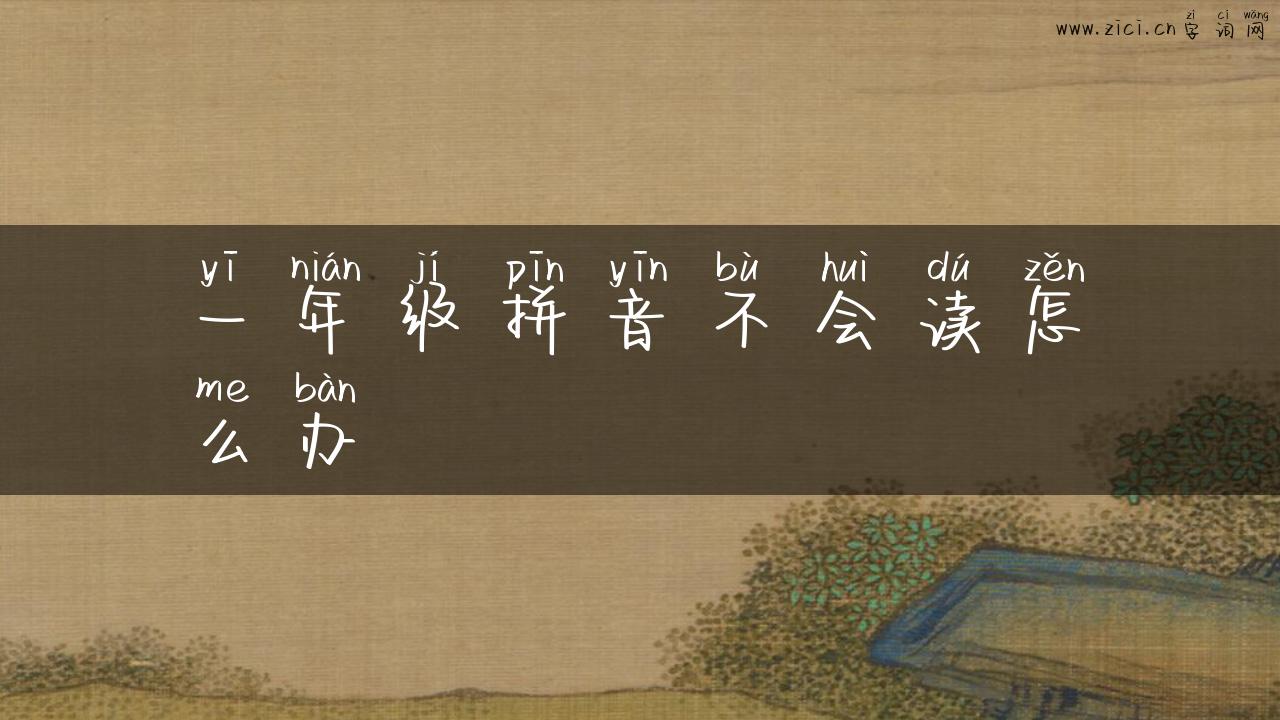 zì cí wǎng
www.zici.cn 字词网
yī nián jí pīn yīn bù huì dú zěn
一年级拼音不会读怎
me bàn
么办